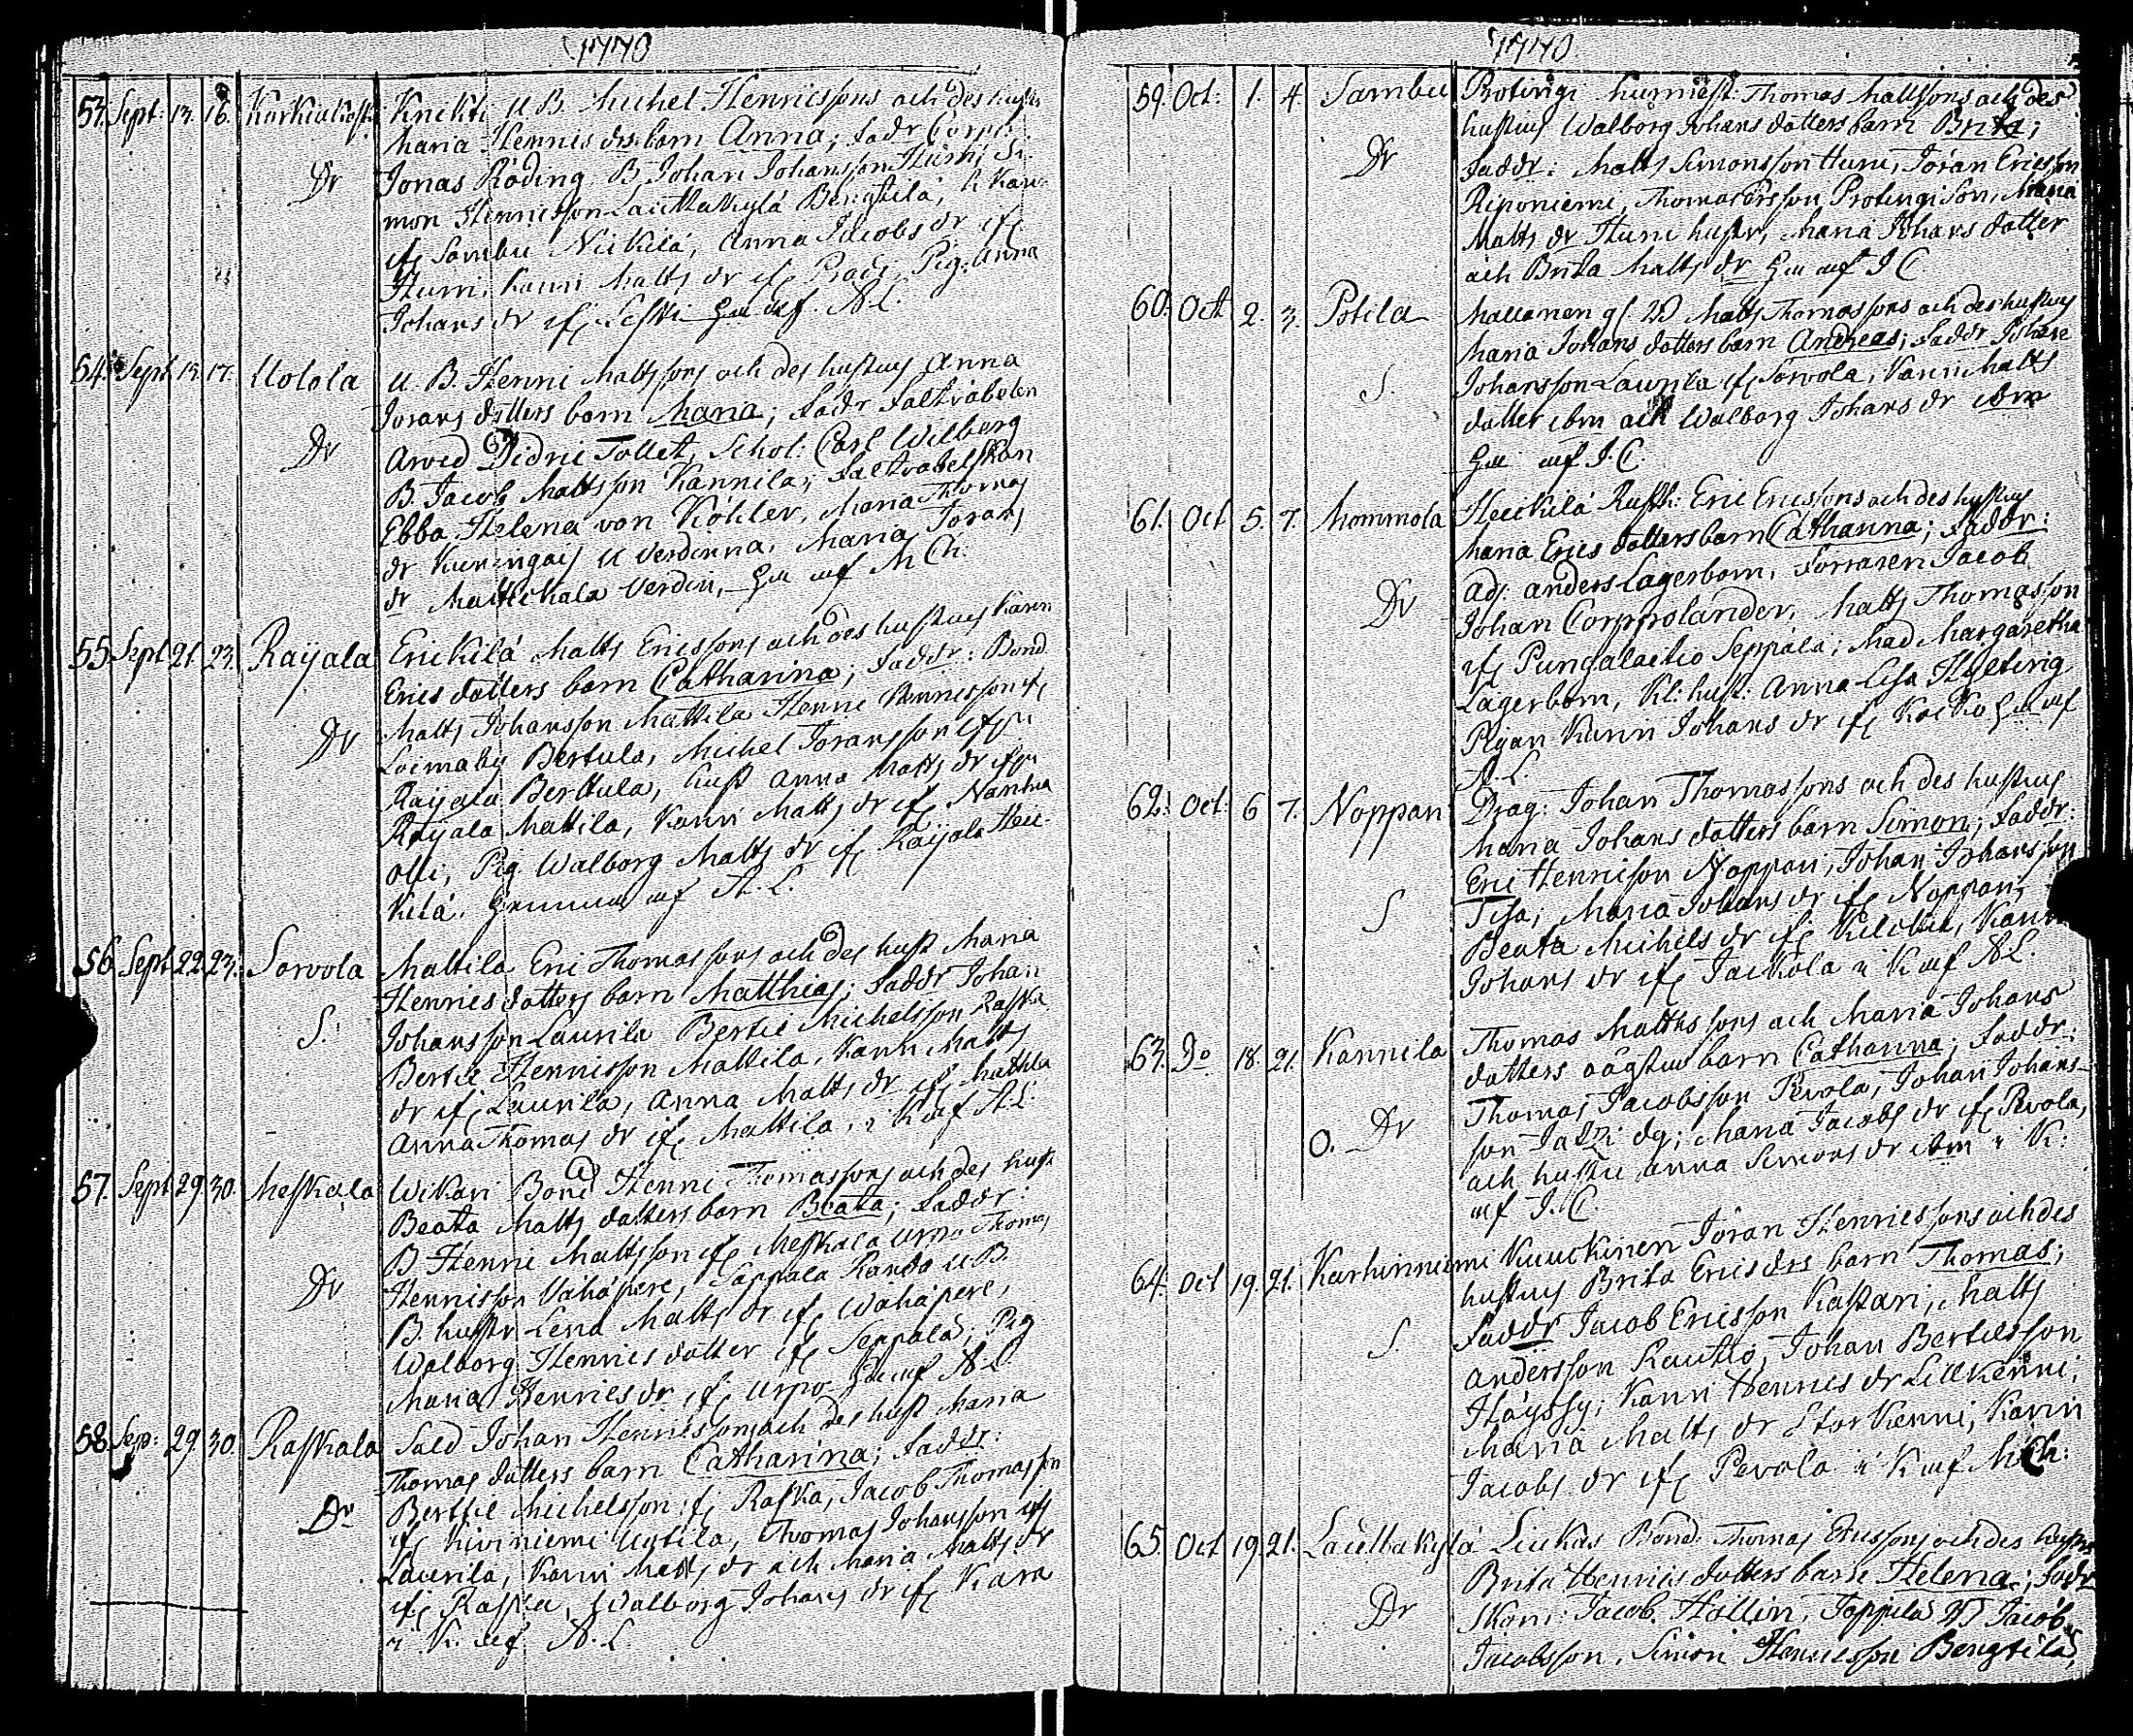 1770
53. Sept: 13. 16. Korkeakoski Knekti U B. Michel Henricssons och des hustrus
Maria Henrics drs barn Anna; Faddr Corpr:
Dr Jonas Röding, B. Johan Johansson Hurri, Si-
mon Henricsson Lauttakylä Bengtilä,
ifr Sambu Nickilä, Anna Jacobs dr ifr
Hurri, Karin Matts dr ifr Pradi, Pig: Anna
Johans dr ifr Leski Gm af A. L.
54. Sept 13. 17. Uotola U. B. Henric Mattssons och des hustrus Anna
Jörans dotters barn Maria; Faddr Fältväbelen
Dr Arved Didric Tollet, Schol: Carl Wilberg
B. Jacob Mattsson Kannila; Fältväbelskan
Ebba Helena von Köhler, Maria Thomas
dr Kuningas U Verdinna, Maria Jörans
dr Verdin, Gm af M Ch.
55 Sept 21. 23. Raijala Erickilä Matts Ericssons och des hustrus Karin
Erics dotters barn Catharina; Faddr: Bond
Dr Matts Johansson Mattila Henric Henricsson ifr
Loimaby Bertula, Michel Joransson ifr
Raijala Berttula, hust Anna Matts dr ifr
Raijala Mattila, Karin Matts dr ifr Nanhia
Olli, Pig. Walborg Matts dr ifr Raijala Hei-
kilä. Gm af A. L.
56 Sept 22 23. Sorvola Mattila Eric Thomassons och des hust Maria
Henrics dotters barn Matthias; Faddr Johan
S. Johansson Laurila Bertil Michelsson Raska
Bertil Henricsson Mattila, Karin Matts
dr ifr Laurila, Anna Matts dr ifr Mattila
Anna Thomas dr ifr Mattila, i K af A. L.
57. Sept 29. 30. Meskala Wikari Bond Henric Thomassons och des hust
Beata Matts dotters barn Beata; Faddr:
B Henric Mattsson ifr Meskala Urpo Thomas
Dr Henricsson Vähäpere, Sappala Rando U B.
B. hustr Lena Matts dr ifr Wähäpere,
Walborg Henrics dotter ifr Seppälä; Pig
Maria Henrics dr ifr Urpo Gm af A. L.
58. Sep: 29. 30. Raskala Sold Johan Henricssons och des hust Maria
Thomas dotters barn Catharina; Faddr:
Dr Berttil Michelsson ifr Raska, Jacob Thomasson
ifr Kiviniemi Uotila, Thomas Johansson ifr
Laurila, Karin Matts dr och Maria Matts dr
ifr Raska, Walborg Johans dr ifr Kara
i K. af A. L.
1770.
59. Oct: 1. 4. Sambu Protingi Thomas Mattssons och des
hustrus Walborg Johans dotters barn Brita;
Dr Faddr: Matts Simonsson Hurri, Jöran Ericsson
Riponiemi, Thomas Persson Protingi Son, Maria
Matts dr Hurri hustr, Maria Johans dotter
och Brita Matts dr Gm af I C.
60. Oct 2. 3. Potila Mattsmen gl. W Matts Thomassons och des hustrus
Maria Johans dotters barn Andreas; Faddr Johan
S. Johansson Laurila ifr Sorvola, Karin Matts
dotter ibm och Walborg Johans dr ibm
Gm af I. C.
61. Oct 5. 7. Mommola Heickilä Rusth: Eric Ericssons och des hustrus
Maria Erics dotters barn Catharina; Faddr:
Dr Adj. Anders Lagerbom, Forraren Jacob
Johan Corpolander, Matts Thomasson
ifr Pungalaitio Seppälä; Mad Margaretha
Lagerbom, Kl: hust: Anna Lisa Heltvig
Pigan Karin Johans dr ifr Kocko Gm af
A. L.
62. Oct: 6 7. Noppari Drag: Johan Thomassons och des hustrus
Maria Johans dotters barn Simon; Faddr:
S Eric Henricson Noppari, Johan Johansson
Tisa; Maria Johans dr ifr Noppari,
Beata Michels dr ifr Kilckis, Karin
Johans dr ifr Jackola i K af A L.
63. Do 18. 21. Kannila Thomas Mattssons och Maria Johans
dotters oägta barn Catharina; Faddr:
O. Dr Thomas Jacobsson Pevola, Johan Johans-
son Jatzi dg; Maria Jacobs dr ifr Pevola,
och hustru Anna Simons dr ibm i K:
af I. C.
64. Oct 19. 21. Karhinniemi Kuuckinen Jöran Henricssons och des
hustrus Brita Erics drs barn Thomas;
S. Faddr Jacob Ericsson Kastari, Matts
Andersson Rautio, Johan Bertilsson
Häyssy; Karin Henrics dr Lillkenni;
Maria Matts dr Storkenni, Karin
Jacobs dr ifr Pevola i K af M Ch:
65. Oct 19. 21. Lauttakylä Luckas Bond: Thomas Ericssons och des hustrs
Brita Henrics dotters barn Helena; Fadr
Dr Skom: Jacob Hollin, Toppila Jacob
Jacobsson, Simon Henricsson Bengtilä,